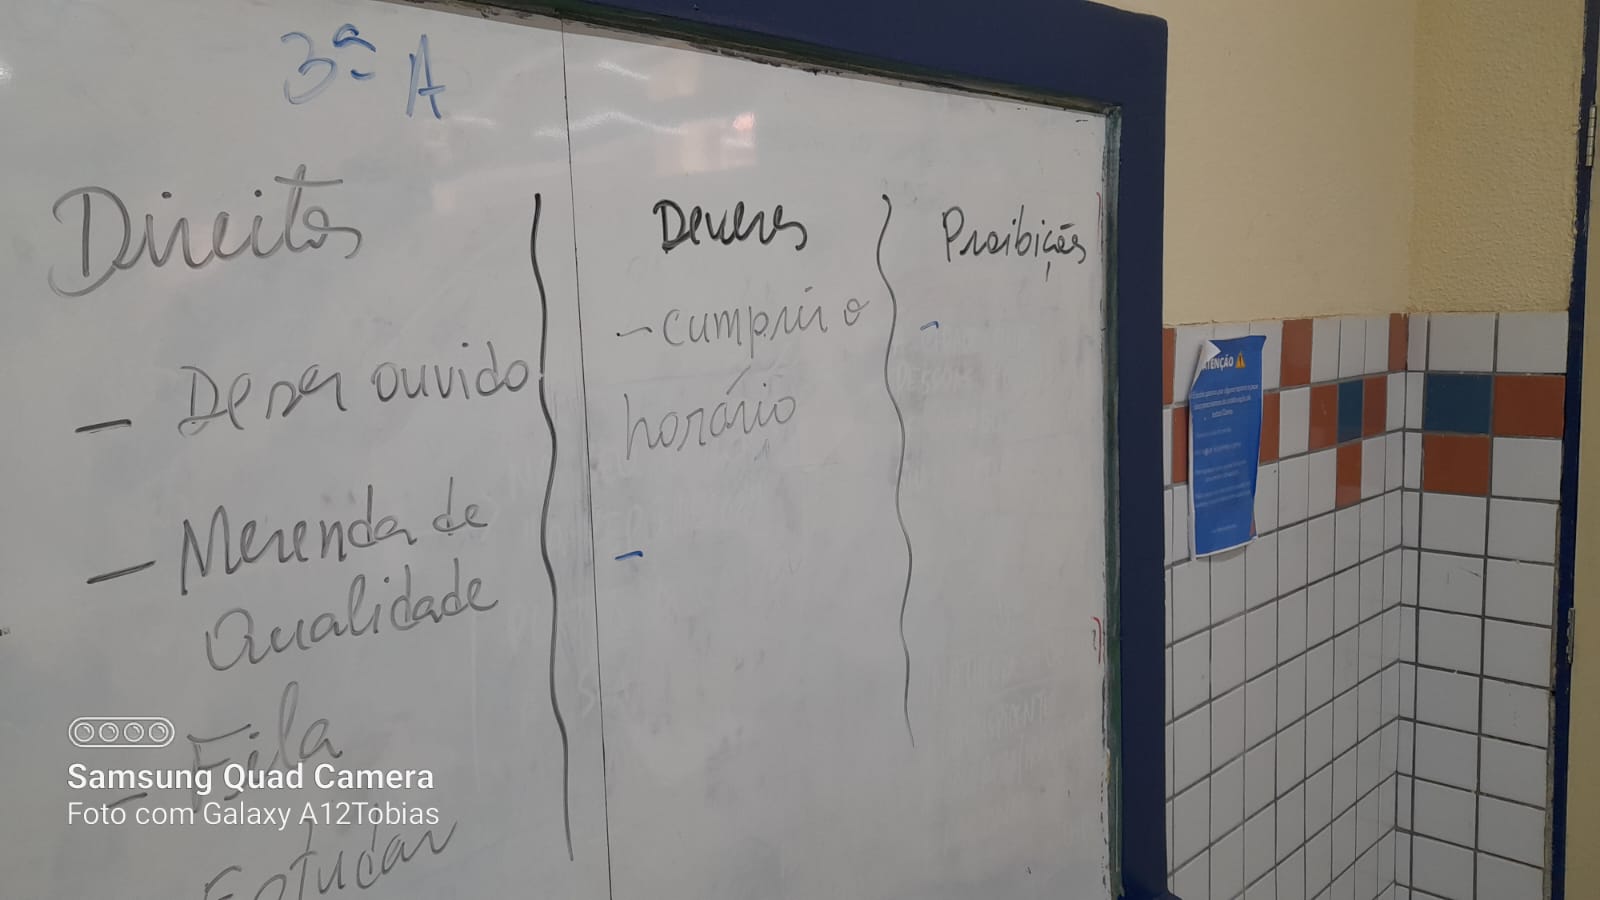 3ª A
Direitos
- De ser ouvido
- Merenda de
Qualidade
- Fila
Estudar
Deveres
- cumprir o
horário
-
Proibições
-
ATENÇÃO
Samsung Quad Camera
Foto com Galaxy A12Tobias